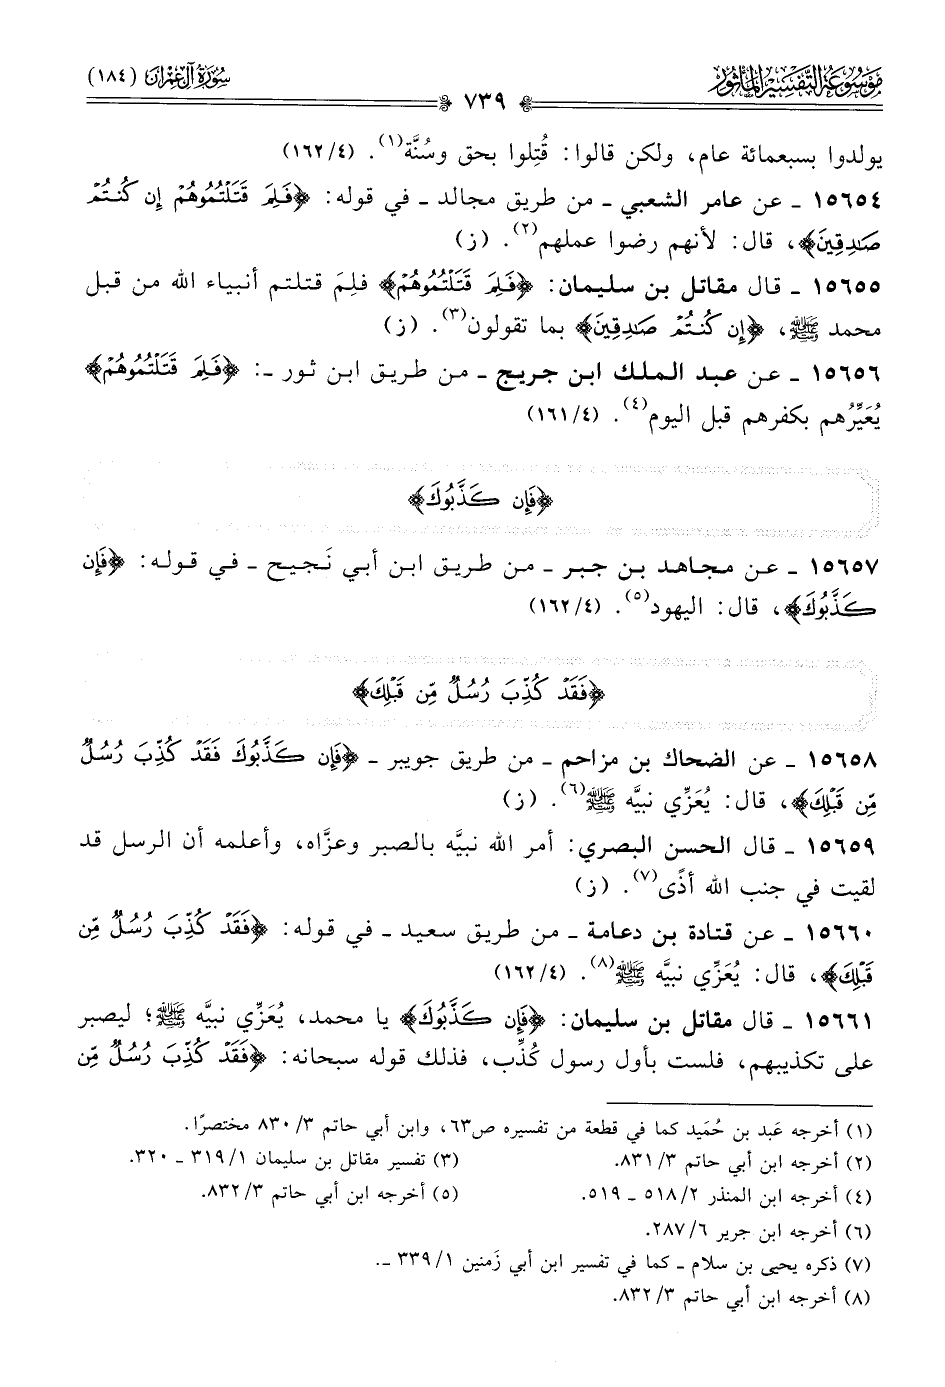 موسوعة التفسير المأثور
سورة آل عمران (١٨٤)
٧٣٩
يولدوا بسبعمائة عام، ولكن قالوا: قُتِلوا بحق وسُنَّة(١). (١٦٢/٤)
١٥٦٥٤ ـ عن عامر الشعبي ـ من طريق مجالد ـ في قوله: ﴿فَلِمَ قَتَلْتُمُوهُمْ إِن كُنتُمْ
صَٰدِقِينَ﴾، قال: لأنهم رضوا عملهم(٢). (ز)
١٥٦٥٥ ـ قال مقاتل بن سليمان: ﴿فَلِمَ قَتَلْتُمُوهُمْ﴾ فلِمَ قتلتم أنبياء الله من قبل
محمد ﷺ، ﴿إِن كُنتُمْ صَٰدِقِينَ﴾ بما تقولون(٣). (ز)
١٥٦٥٦ ـ عن عبد الملك ابن جريج ـ من طريق ابن ثور ـ: ﴿فَلِمَ قَتَلْتُمُوهُمْ﴾
يُعَيِّرُهم بكفرهم قبل اليوم(٤). (١٦١/٤)
﴿فَإِن كَذَّبُوكَ﴾
١٥٦٥٧ ـ عن مجاهد بن جبر ـ من طريق ابن أبي نَجيح ـ في قوله: ﴿فَإِن
كَذَّبُوكَ﴾، قال: اليهود(٥). (١٦٢/٤)
﴿فَقَدْ كُذِّبَ رُسُلٌ مِّن قَبْلِكَ﴾
١٥٦٥٨ ـ عن الضحاك بن مزاحم ـ من طريق جويبر ـ ﴿فَإِن كَذَّبُوكَ فَقَدْ كُذِّبَ رُسُلٌ
مِّن قَبْلِكَ﴾، قال: يُعَزِّي نبيَّه ﷺ(٦). (ز)
١٥٦٥٩ ـ قال الحسن البصري: أمر الله نبيَّه بالصبر وعزَّاه، وأعلمه أن الرسل قد
لقيت في جنب الله أذًى(٧). (ز)
١٥٦٦٠ ـ عن قتادة بن دعامة ـ من طريق سعيد ـ في قوله: ﴿فَقَدْ كُذِّبَ رُسُلٌ مِّن
قَبْلِكَ﴾، قال: يُعَزِّي نبيَّه ﷺ(٨). (١٦٢/٤)
١٥٦٦١ ـ قال مقاتل بن سليمان: ﴿فَإِن كَذَّبُوكَ﴾ يا محمد، يُعَزِّي نبيَّه ﷺ؛ ليصبر
على تكذيبهم، فلست بأول رسول كُذِّب، فذلك قوله سبحانه: ﴿فَقَدْ كُذِّبَ رُسُلٌ مِّن
(١) أخرجه عَبد بن حُمَيد كما في قطعة من تفسيره ص٦٣، وابن أبي حاتم ٨٣٠/٣ مختصرًا.
(٢) أخرجه ابن أبي حاتم ٨٣١/٣. (٣) تفسير مقاتل بن سليمان ٣١٩/١ ـ ٣٢٠.
(٤) أخرجه ابن المنذر ٥١٨/٢ ـ ٥١٩. (٥) أخرجه ابن أبي حاتم ٨٣٢/٣.
(٦) أخرجه ابن جرير ٢٨٧/٦.
(٧) ذكره يحيى بن سلام ـ كما في تفسير ابن أبي زَمنين ٣٣٩/١ ـ.
(٨) أخرجه ابن أبي حاتم ٨٣٢/٣.